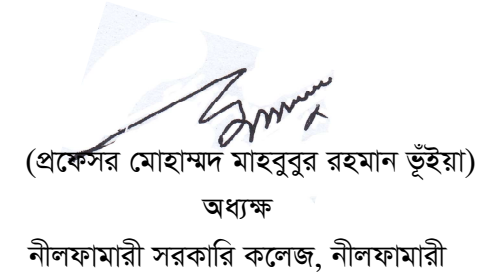 (প্রফেসর মোহাম্মদ মাহবুবুর রহমান ভূঁইয়া)
অধ্যক্ষ
নীলফামারী সরকারি কলেজ, নীলফামারী